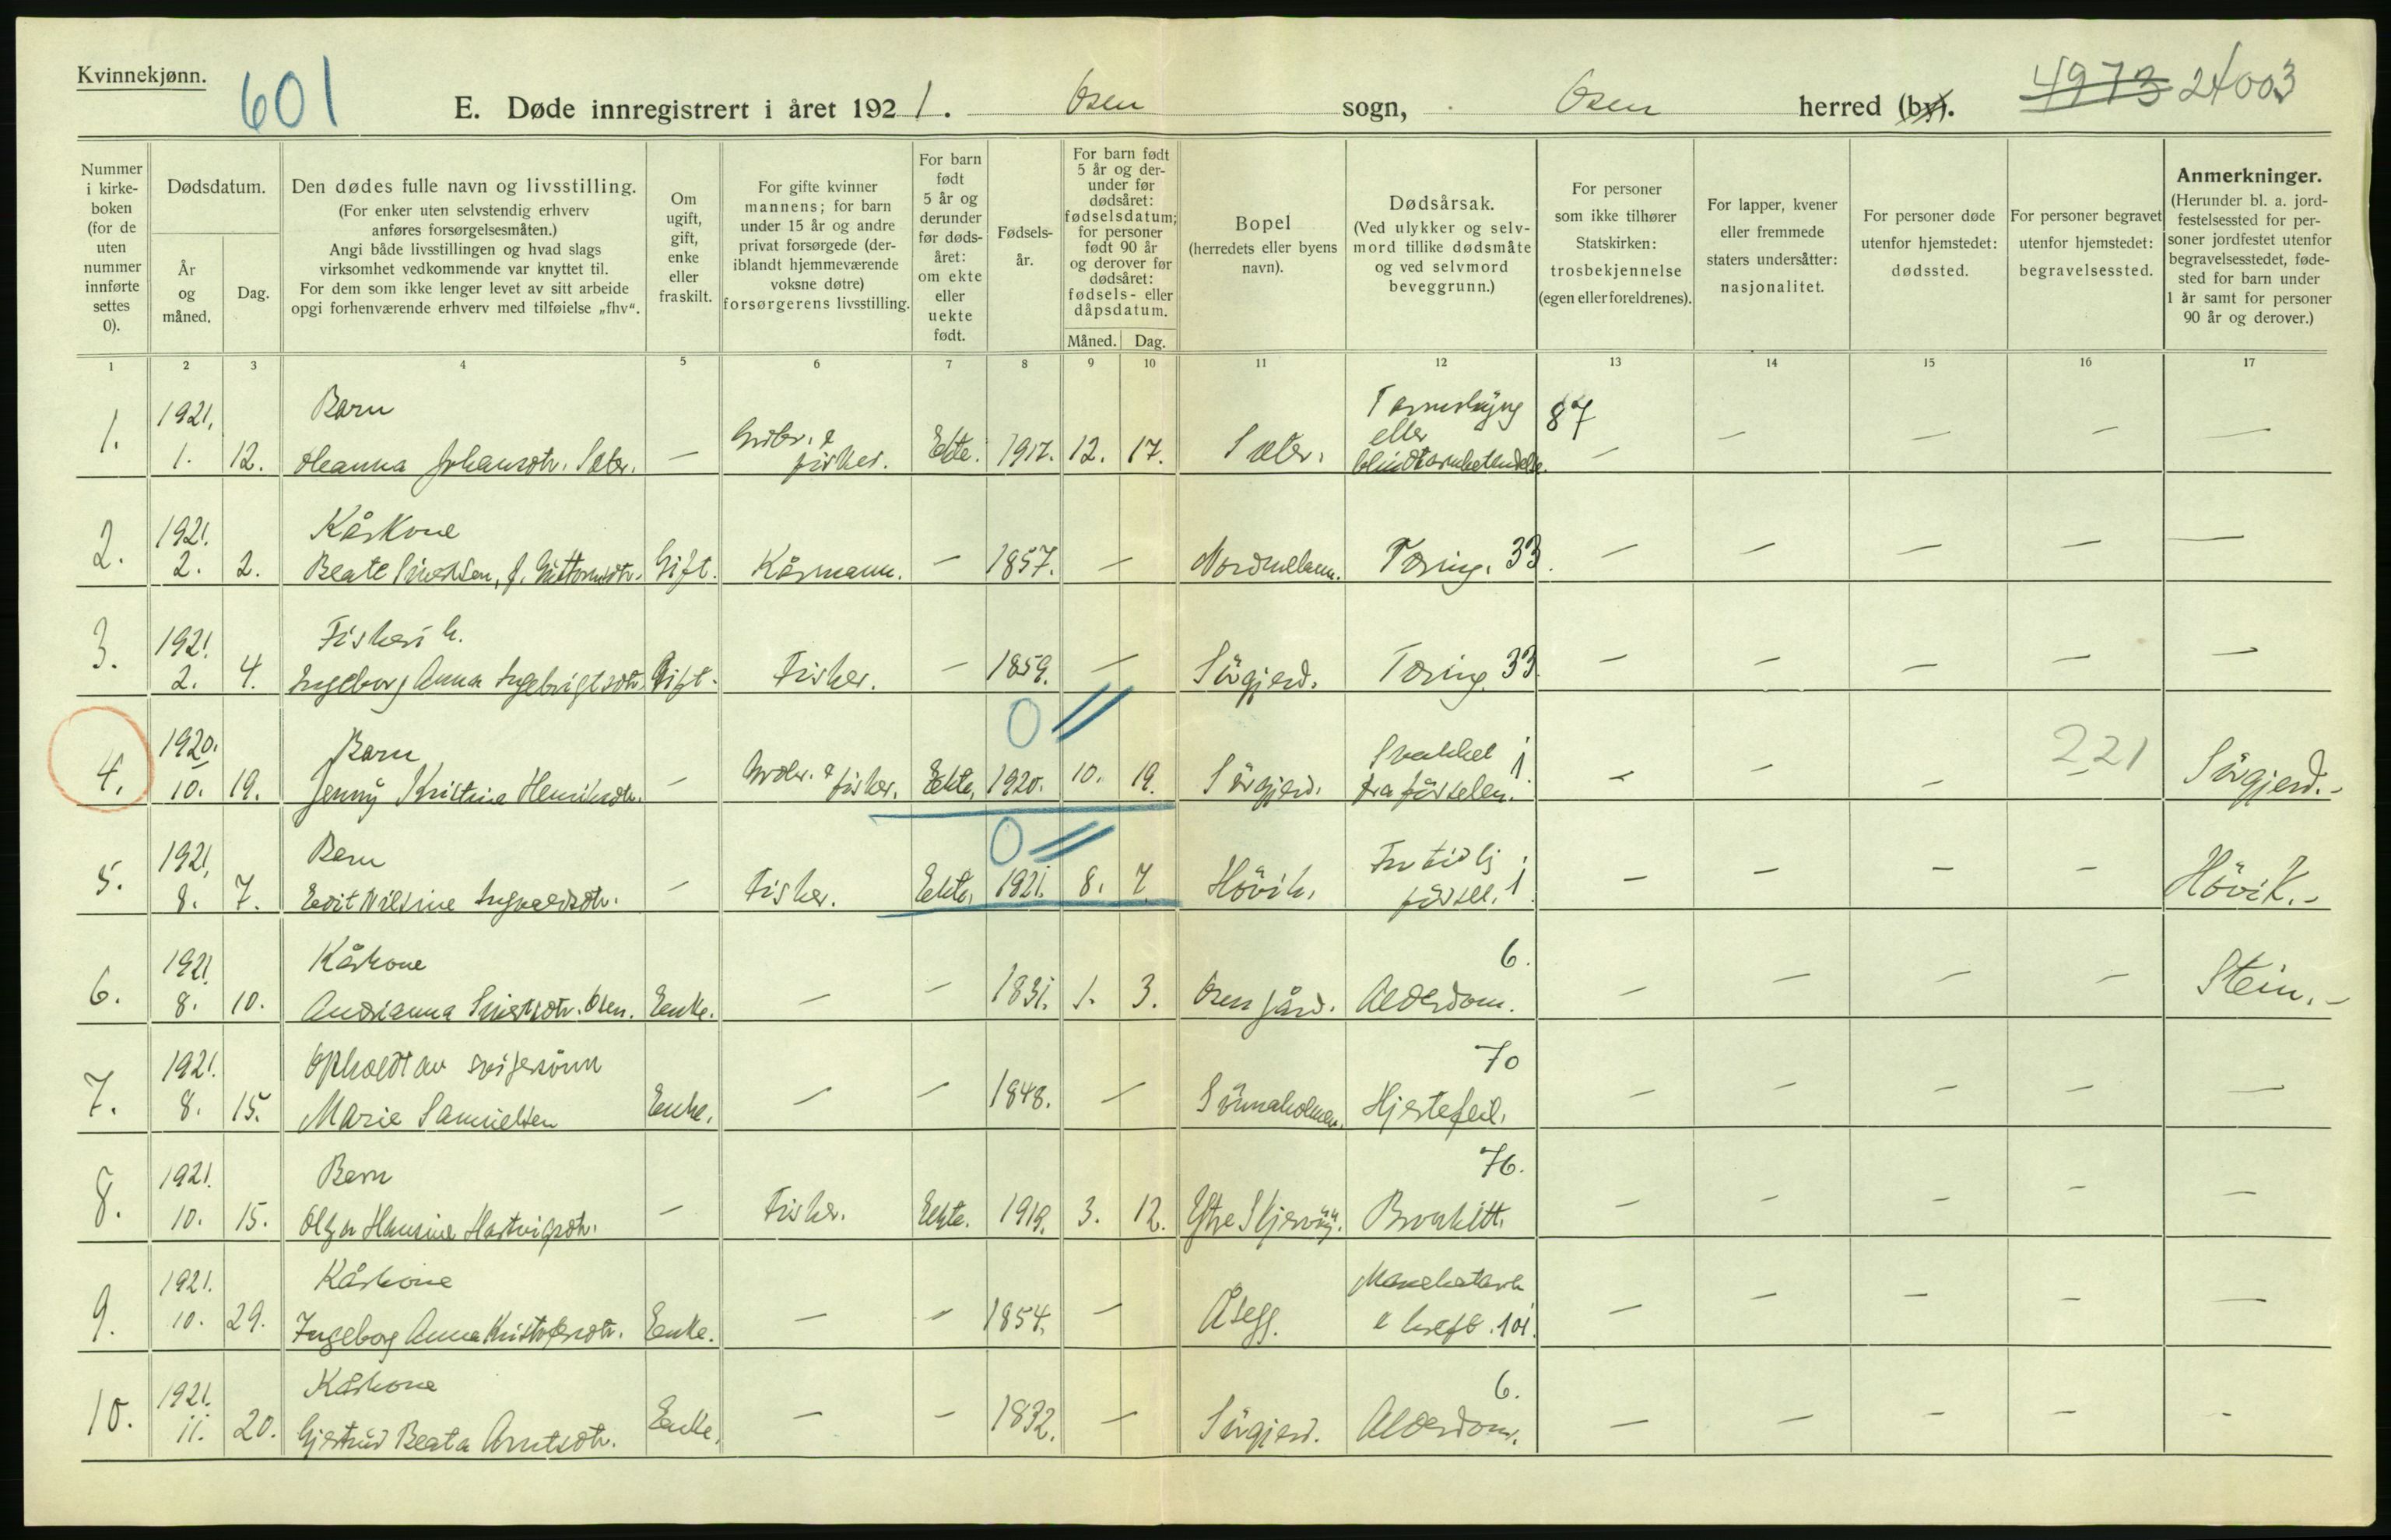 Kvinnekjønn.
601
E. Døde innregistrert i året 1921. Osen sogn, Osen herred (by).
4973 24003
Nummer i kirkeboken (for de uten nummer innførte settes 0).
Dødsdatum.
År og måned.
Dag.
Den dødes fulle navn og livsstilling.
(For enker uten selvstendig erhverv anføres forsørgelsesmåten.)
Angi både livsstillingen og hvad slags virksomhet vedkommende var knyttet til.
For dem som ikke lenger levet av sitt arbeide opgi forhenværende erhverv med tilføielse „fhv“.
Om ugift, gift, enke eller fraskilt.
For gifte kvinner mannens; for barn under 15 år og andre privat forsørgede (deriblandt hjemmeværende voksne døtre) forsørgerens livsstilling.
For barn født 5 år og derunder før dødsåret: om ekte eller uekte født.
Fødselsår.
For barn født 5 år og derunder før dødsåret: fødselsdatum; for personer født 90 år og derover før dødsåret: fødsels- eller dåpsdatum.
Måned.
Dag.
Bopel
(herredets eller byens navn).
Dødsårsak.
(Ved ulykker og selvmord tillike dødsmåte og ved selvmord beveggrunn.)
For personer som ikke tilhører Statskirken: trosbekjennelse (egen eller foreldrenes).
For lapper, kvener eller fremmede staters undersåtter: nasjonalitet.
For personer døde utenfor hjemstedet: dødssted.
For personer begravet utenfor hjemstedet: begravelsessted.
Anmerkninger.
(Herunder bl. a. jordfestelsessted for personer jordfestet utenfor begravelsesstedet, fødested for barn under 1 år samt for personer 90 år og derover.)
1 2 3 4 5 6 7 8 9 10 11 12 13 14 15 16 17
1921, Barn Tarmslyng 87
1. eller
1. 12. Oleanna Johansdtr. Sæter. — Grdbr. & fisker. Ekte. 1917. 12. 17. Sæter. blindtarmbetendelse. — — — — —
1921. Kåskone
2. 2. 2. Beate Sivertsen, f. Guttormsdtr. Gift. Kåsmann. — 1857. — Nordmelland. Tæring. 33. — — — — —
1921. Fiskersk.
3. 2. 4. Ingeborg Anna Ingebrigtsdtr. Gift. Fisker. — 1859. — Sörgjerd. Tæring. 33 — — — — —
0 //
1920. Barn Svakhet 1 221
4. 10. 19. Jenny Kristine Henriksdtr. — Grdbr. & fisker. Ekte, 1920. 10. 19. Sörgjerd. fra födselen. — — — Sörgjerd.-
0 //
1921, Barn For tidlig
5. 8. 7. Edit Nilsine Ingvaldsdtr. — Fisker. Ekte, 1921. 8. 7. Hövik. födsel. 1 — — — — Hövik.-
1921 Kåskone 6.
6. 8. 10. Andrianna Sivertsdtr. Osen. Enke. — — 1831. 1. 3. Osen gård. Alderdom. — — — — Stein.-
1921. Opholdt av svigersönn 70
7. 8. 15. Marie Samuelsen Enke. — — 1848. — Sönnaholmen. Hjertefeil. — — — — —
1921. Barn 76.
8. 10. 15. Olga Hansine Hartvigsdtr. — Fisker. Ekte. 1919. 3. 12. Ystre Skjervöy. Bronkitt. — — — — —
1921. Kåskone Mavekatarrh
9. 10. 29. Ingeborg Anna Kristofersdtr. Enke. — — 1854. — Åsegg. & kreft. 101. — — — — —
1921. Kåskone 6.
10. 11. 20. Gjertrud Beata Arntsdtr. Enke. — — 1832. — Sörgjerd. Alderdom. — — — — -